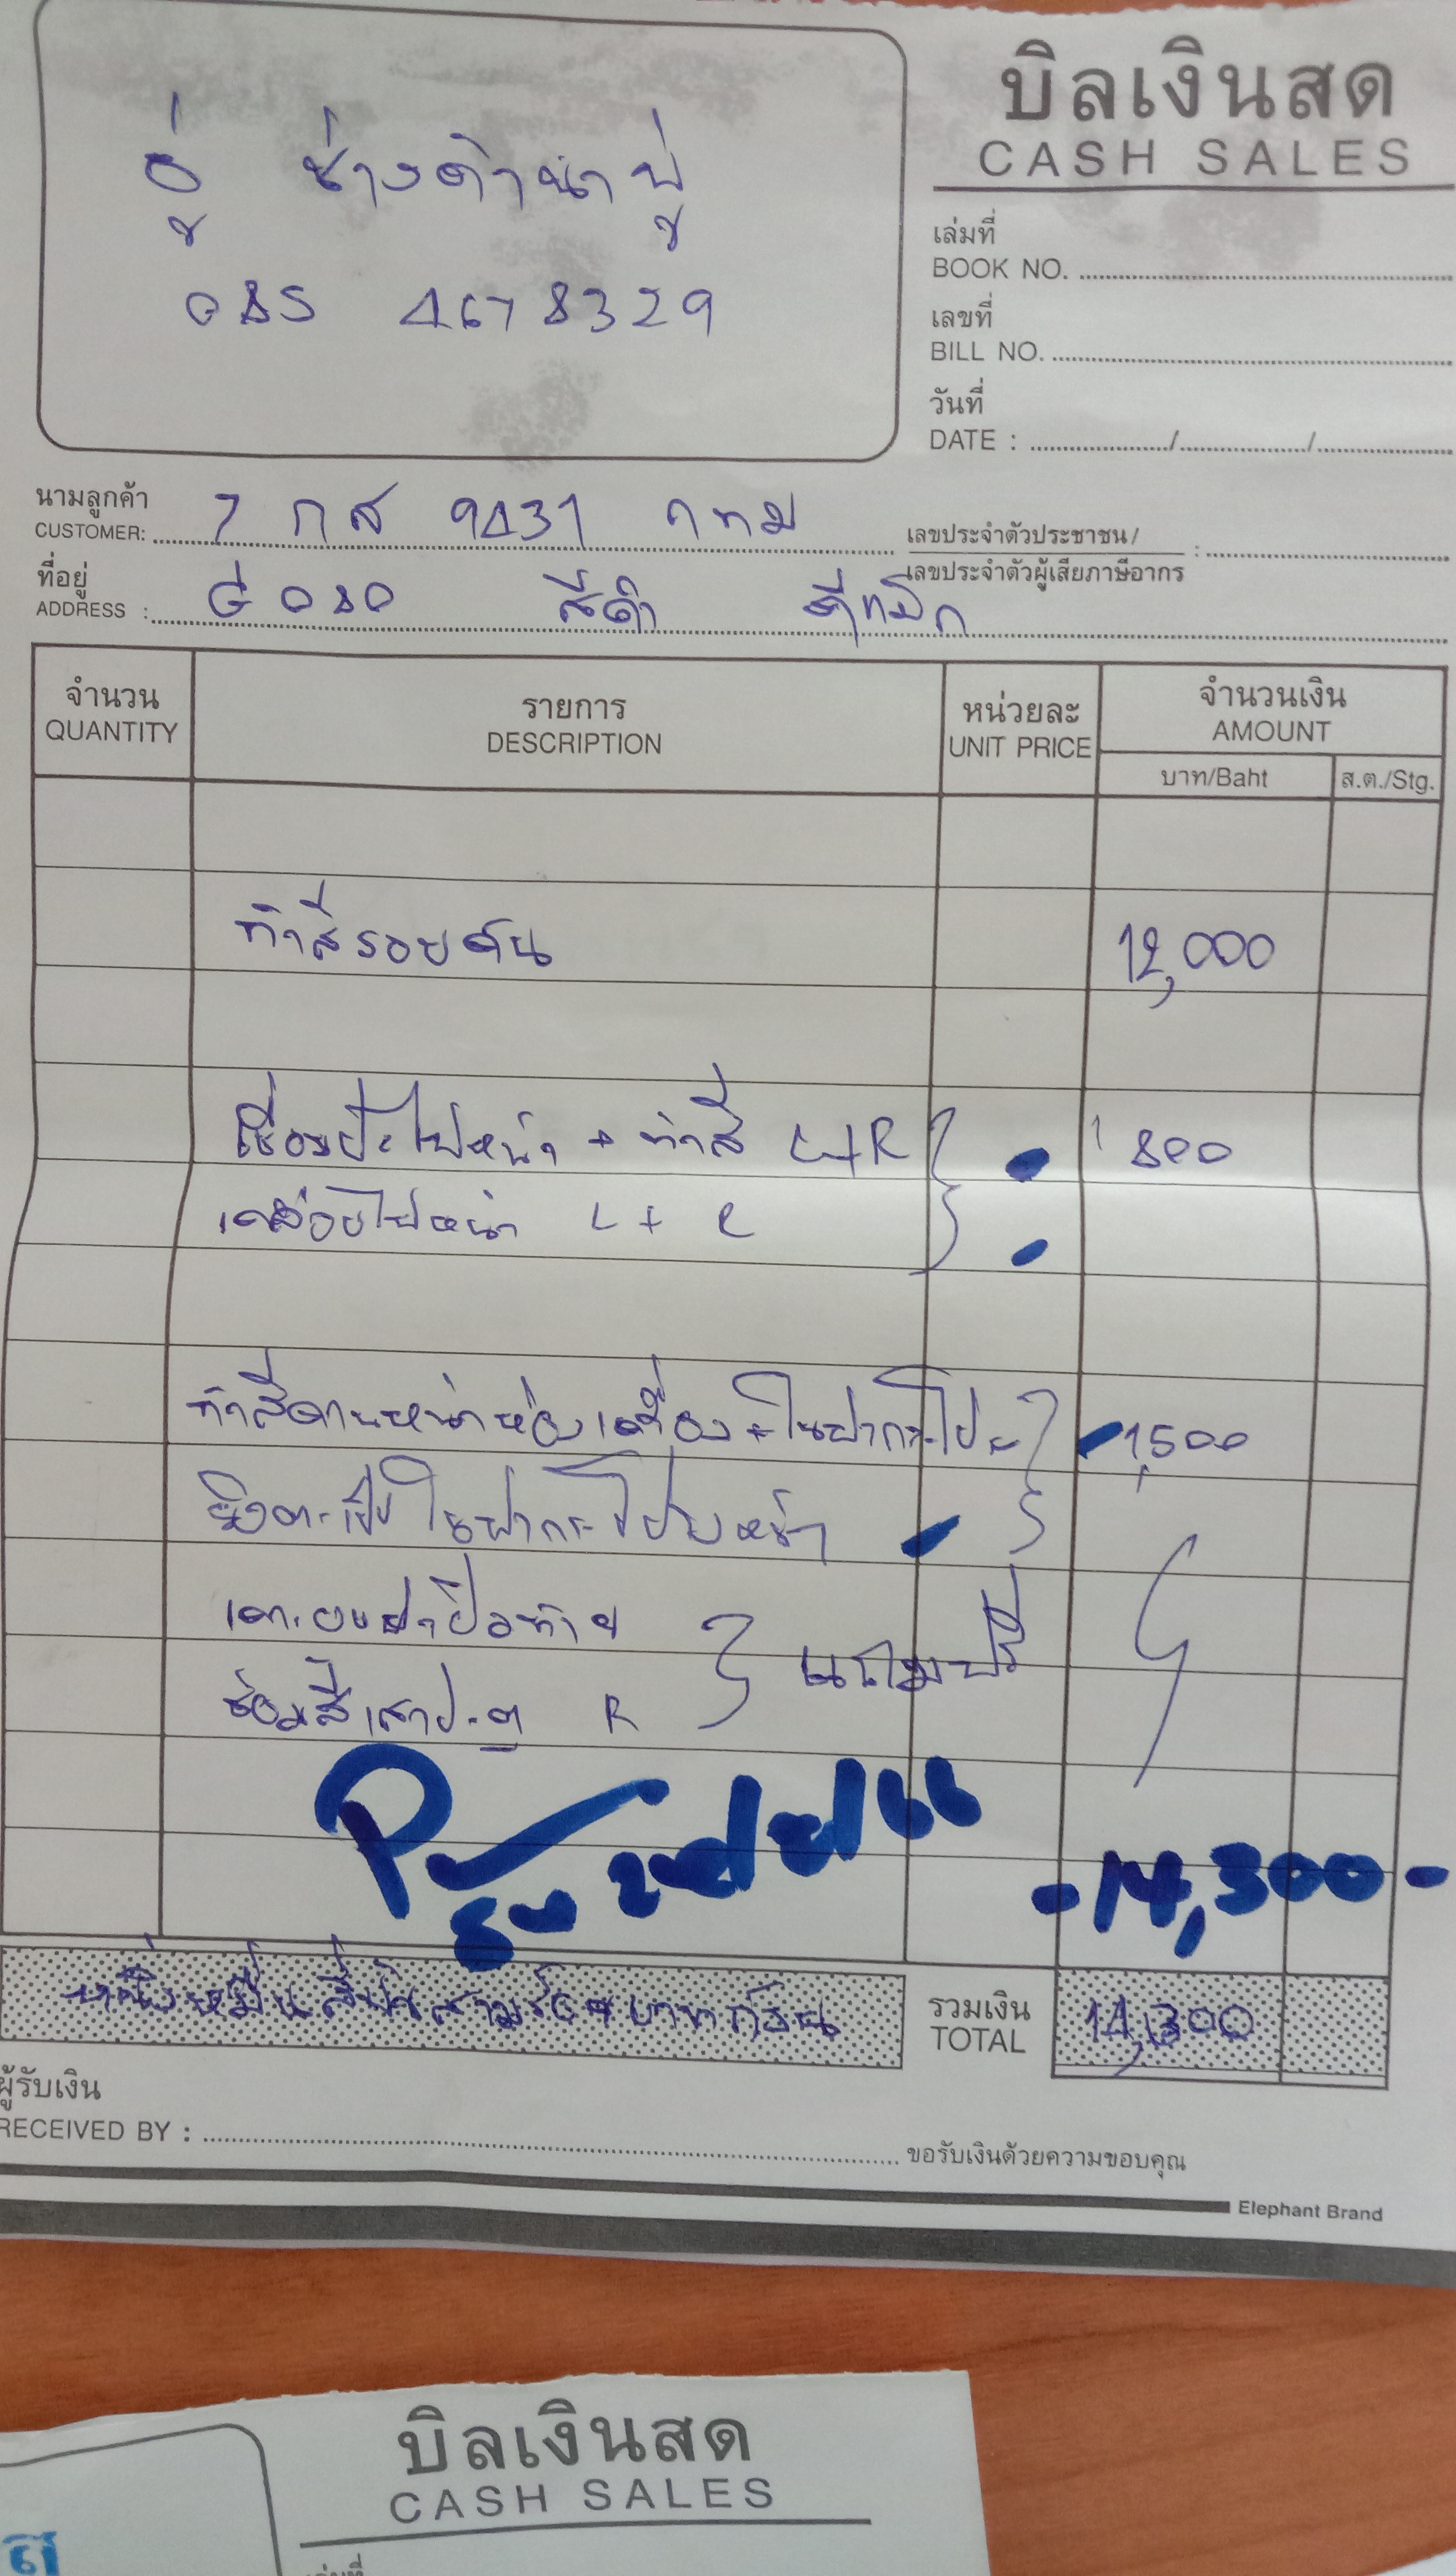 บิลเงินสด
CASH SALES
อู่ ช่างดำนาพู่
085 4678329
เล่มที่
BOOK NO.
เลขที่
BILL NO.
วันที่
DATE : / /
นามลูกค้า
CUSTOMER: 7 กส 9431 กทม
เลขประจำตัวประชาชน /
เลขประจำตัวผู้เสียภาษีอากร :
ที่อยู่
ADDRESS : สีดำ
จำนวน
QUANTITY
รายการ
DESCRIPTION
หน่วยละ
UNIT PRICE
จำนวนเงิน
AMOUNT
บาท/Baht
ส.ต./Stg.
ทำสีรอบคัน 12,000
ไฟหน้า + ทำสี L+R 800
ไฟหน้า L + R
ทำสีคานหน้าห้องเครื่อง+ในฝากระโปรง 1,500
ในฝากระโปรงหน้า
เคาะ ฝาปิดท้าย
ซ่อมสีเสาประตู R
แถมฟรี
14,300-
หนึ่งหมื่นสี่พันสามร้อยบาทถ้วน
รวมเงิน
TOTAL
14,300
ผู้รับเงิน
RECEIVED BY :
ขอรับเงินด้วยความขอบคุณ
Elephant Brand
บิลเงินสด
CASH SALES
เล่มที่